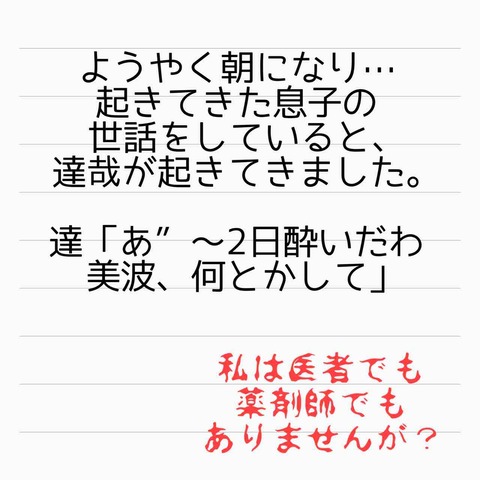 ようやく朝になり…
起きてきた息子の
世話をしていると、
達哉が起きてきました。
達「あ”〜2日酔いだわ
美波、何とかして」
私は医者でも
薬剤師でも
ありませんが？